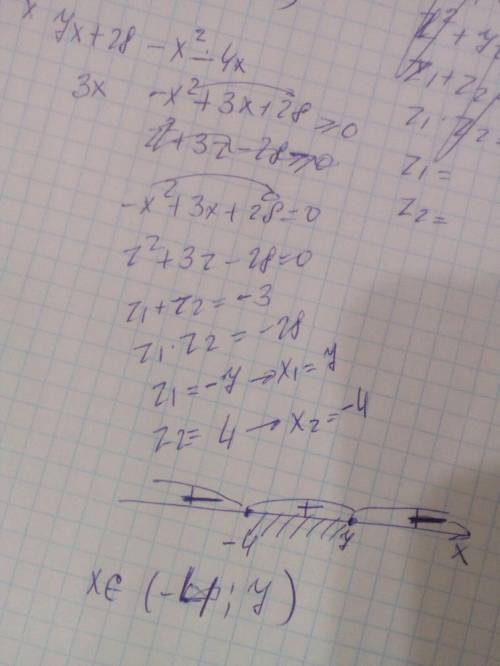 x
7x+28 -x²-4x
3x -x²+3x+28 ≥0
z²+3z-28≥0
-x²+3x+28=0
z²+3z-28=0
z₁+z₂=-3
z₁·z₂=-28
z₁=-7→x₁=7
z₂=4→x₂=-4
z₁+z₂
z₁·z₂=
z₁=
z₂=
- + -
-4 7 x
x∈(-4; 7)